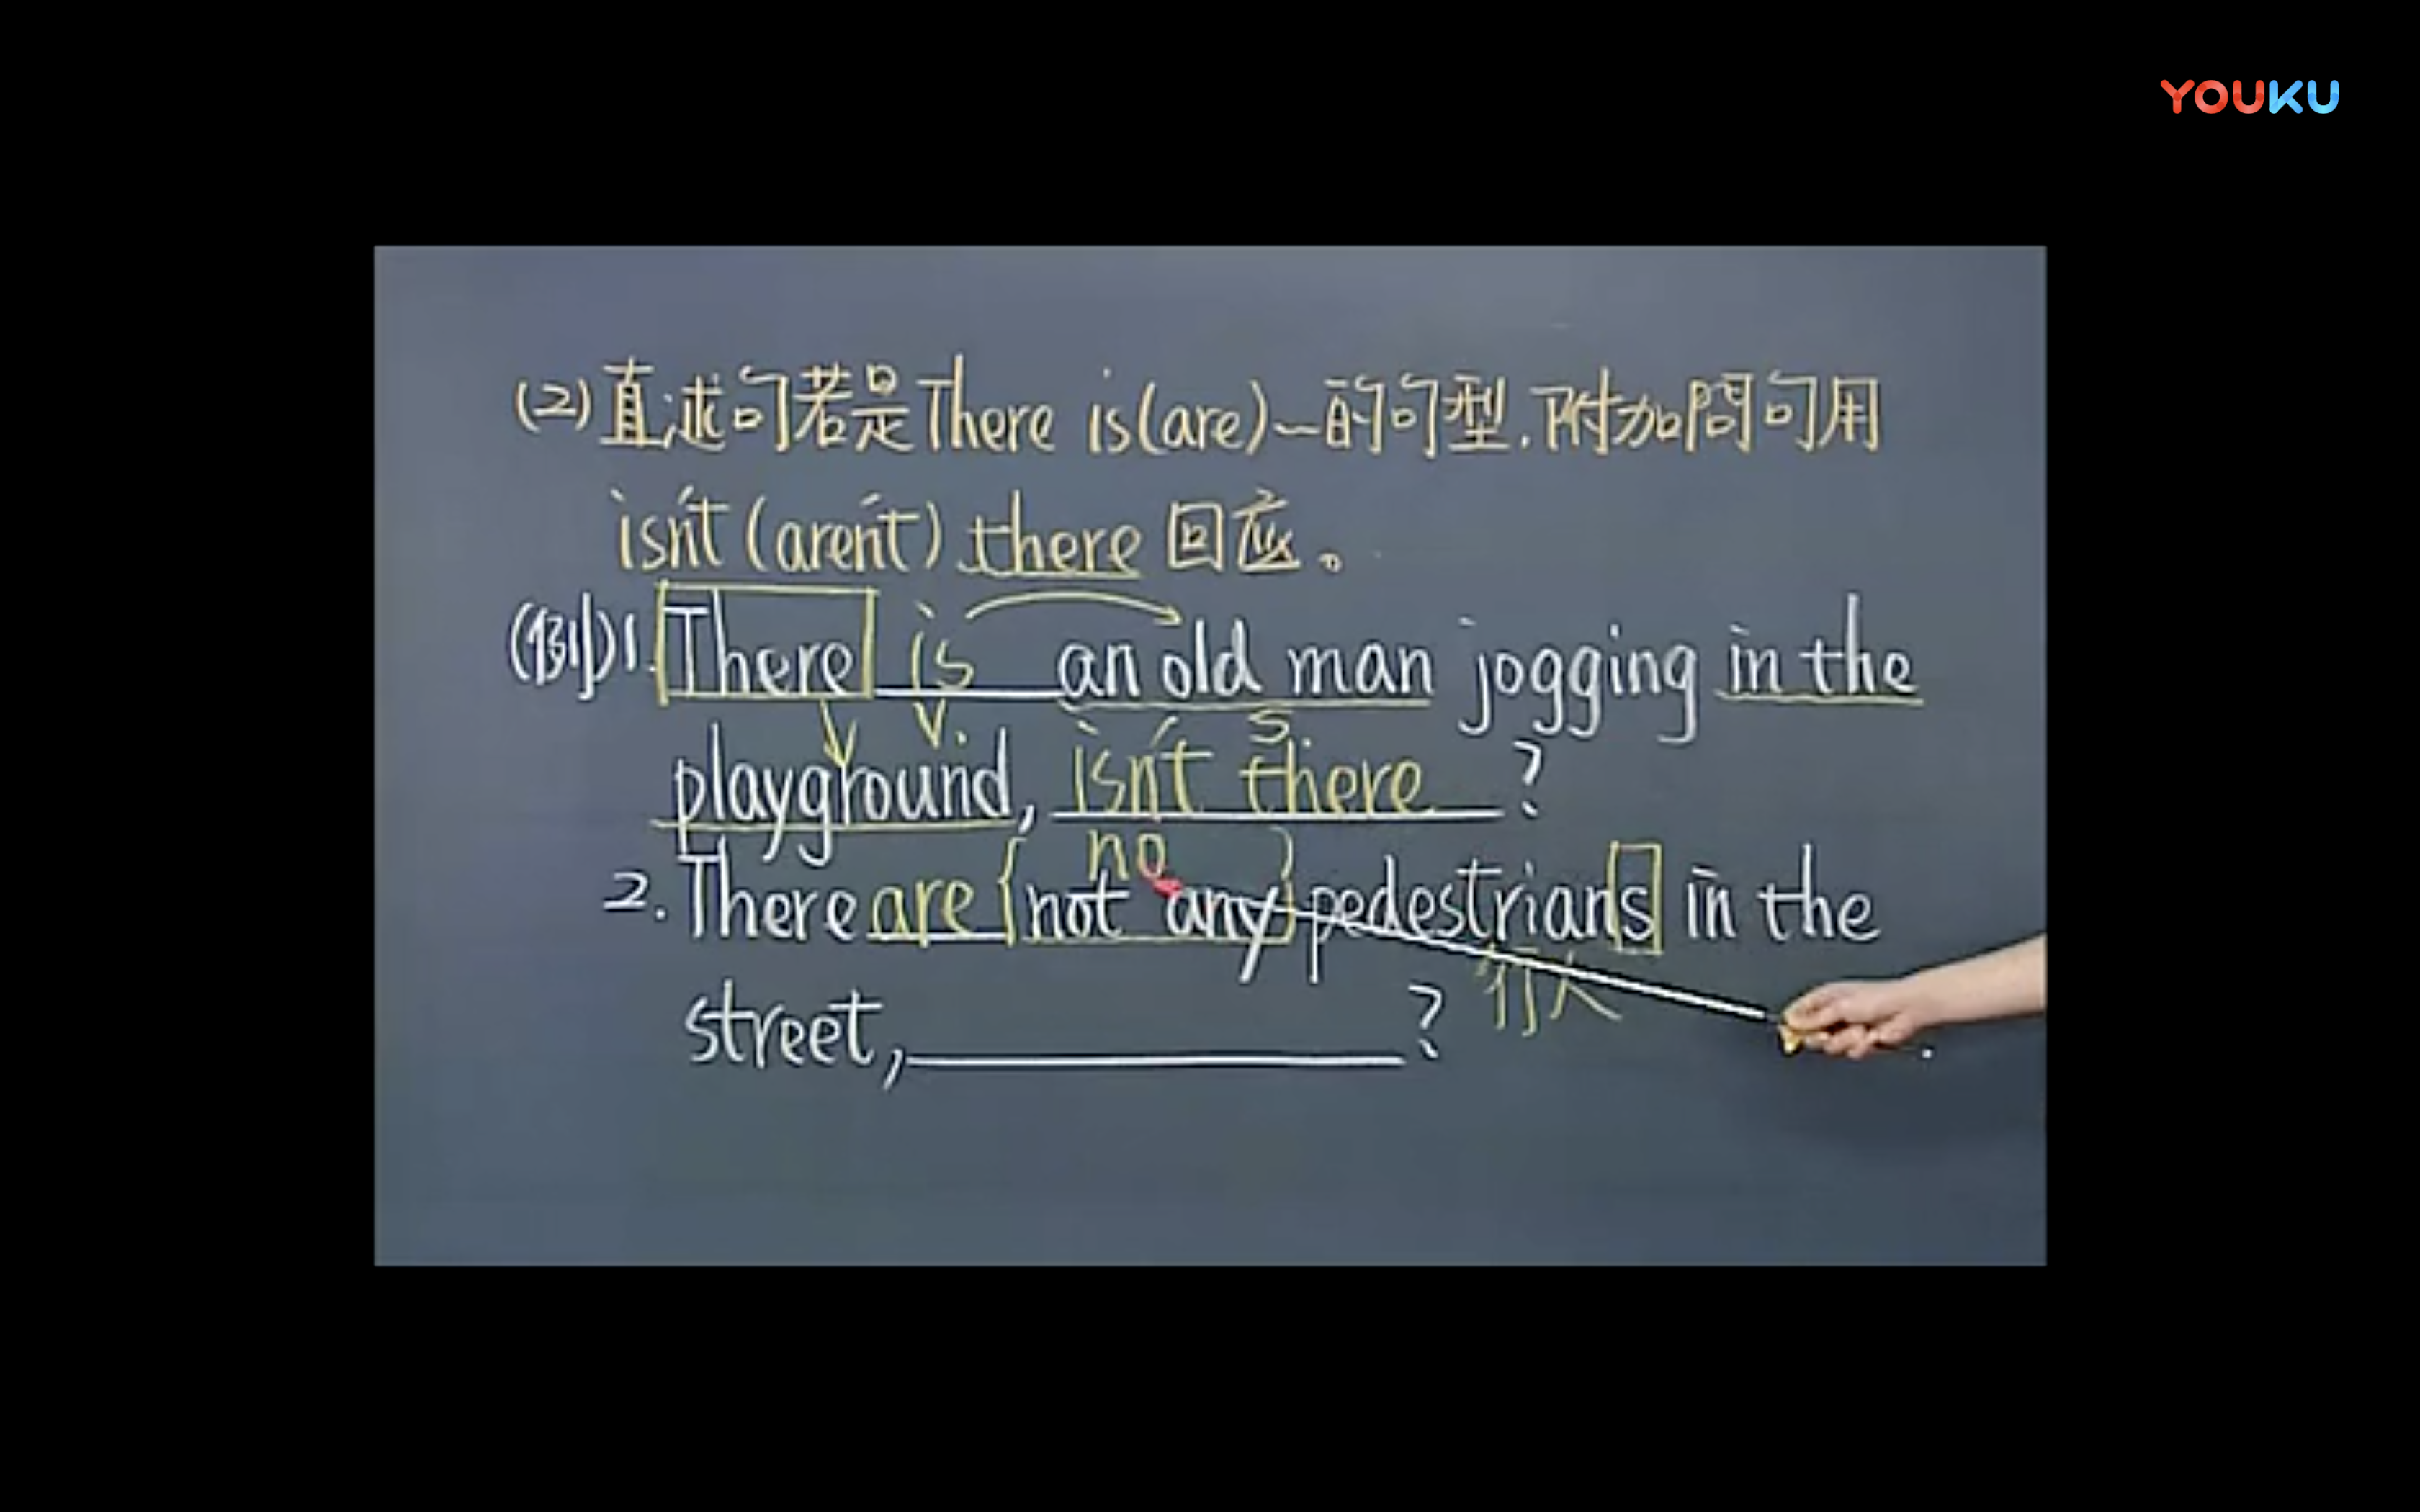 YOUKU
(2)直述句若是There is(are)~的句型,附加問句用
isn't (aren't) there 回应。
(例)1. There is an old man jogging in the
V. S.
playground, isn't there ?
no
2. There are {not any} pedestrians in the
行人
street, ?